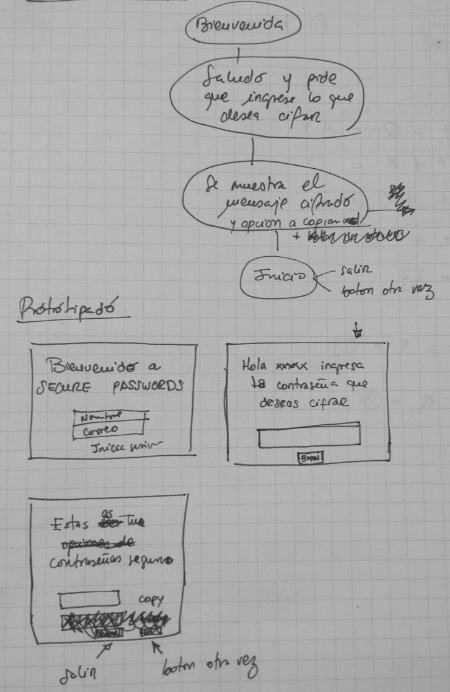 Bienvenida
Saludo y pide
que ingrese lo que
desea cifrar
Se muestra el
mensaje cifrado
y opción a copiar
+
Inicio
salir
boton otra vez
Prototipado
Bienvenido a
SECURE PASSWORDS
Nombre
Correo
Iniciar sesión
Hola xxxxx ingresa
la contraseña que
deseas cifrar
Boton
Estas es Tu
opciones de
contraseñas seguro
copy
salir
boton otra vez